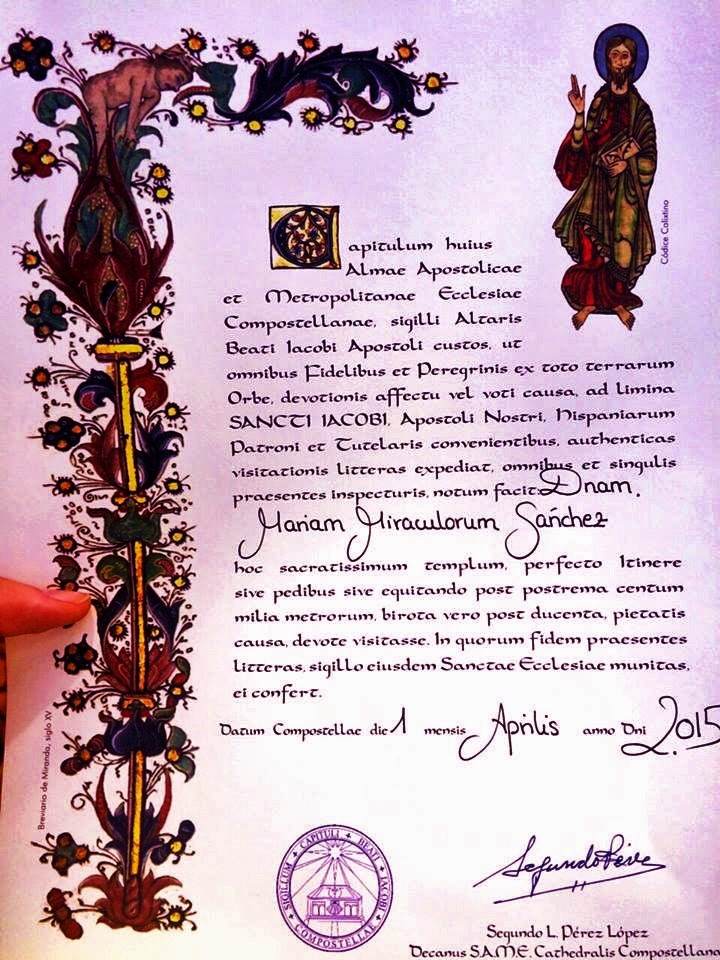 Códice Calixtino
Capitulum huius
Almae Apostolicae
et Metropolitanae Ecclesiae
Compostellanae, sigilli Altaris
Beati Iacobi Apostoli custos, ut
omnibus Fidelibus et Peregrinis ex toto terrarum
Orbe, devotionis affectu vel voti causa, ad limina
SANCTI IACOBI, Apostoli Nostri, Hispaniarum
Patroni et Tutelaris convenientibus, authenticas
visitationis litteras expediat, omnibus et singulis
praesentes inspecturis, notum facit: Dnam.
Mariam Miraculorum Sánchez
hoc sacratissimum templum, perfecto Itinere
sive pedibus sive equitando post postrema centum
milia metrorum, birota vero post ducenta, pietatis
causa, devote visitasse. In quorum fidem praesentes
litteras, sigillo eiusdem Sanctae Ecclesiae munitas,
ei confert.
Datum Compostellae die 1 mensis Aprilis anno Dni 2.015
Breviario de Miranda, siglo XV
SIGILLUM CAPITULI BEATI IACOBI COMPOSTELLAE
Segundo L. Pérez López
Decanus S.A.M.E. Cathedralis Compostellana